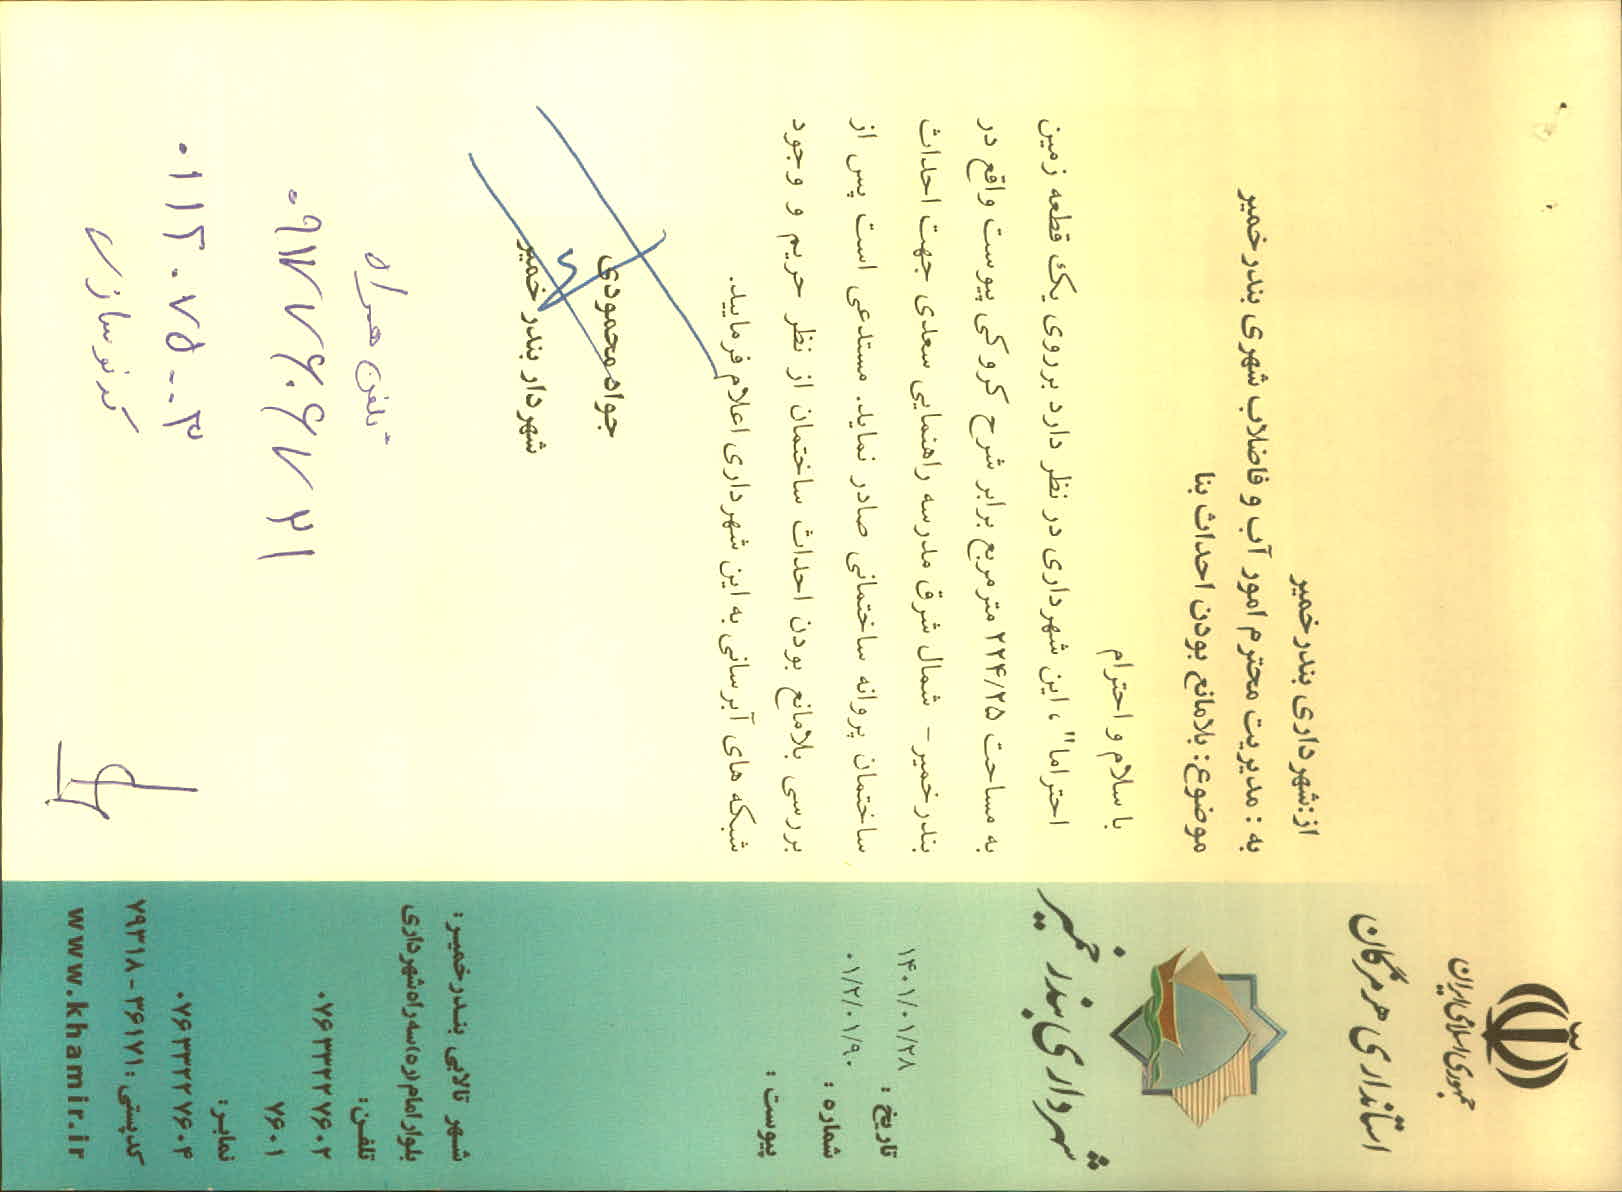 جمهوری اسلامی ایران
استانداری هرمزگان
شهرداری بندر خمیر
تاریخ : ۱۴۰۱/۰۱/۲۸
شماره : ۰۱/۲/۰۱/۹۰
پیوست :
از:شهرداری بندر خمیر
به : مدیریت محترم امور آب و فاضلاب شهری بندر خمیر
موضوع: بلامانع بودن احداث بنا
با سلام و احترام
احتراما" ، این شهرداری در نظر دارد بر روی یک قطعه زمین
به مساحت ۲۲۴/۲۵ مترمربع برابر شرح کروکی پیوست واقع در
بندر خمیر – شمال شرق مدرسه راهنمایی سعدی جهت احداث
ساختمان پروانه ساختمانی صادر نماید. مستدعی است پس از
بررسی بلامانع بودن احداث ساختمان از نظر حریم و وجود
شبکه های آبرسانی به این شهرداری اعلام فرمایید.
جواد محمودی
شهردار بندر خمیر
تلفن همراه
۰۹۱۷۷۶۰۶۷۲۱
۰۱۱۳۰۷۵۰۰۳
کد نوسازی
شهر تالابی بندرخمیر :
بلوار امام (ره) سه راه شهرداری
تلفن :
۰۷۶۳۳۲۲۷۶۰۲
۷۶۰۱
نمابر :
۰۷۶۳۳۲۲۷۶۰۴
کدپستی : ۳۶۱۷۱ - ۷۹۳۱۸
www.khamir.ir